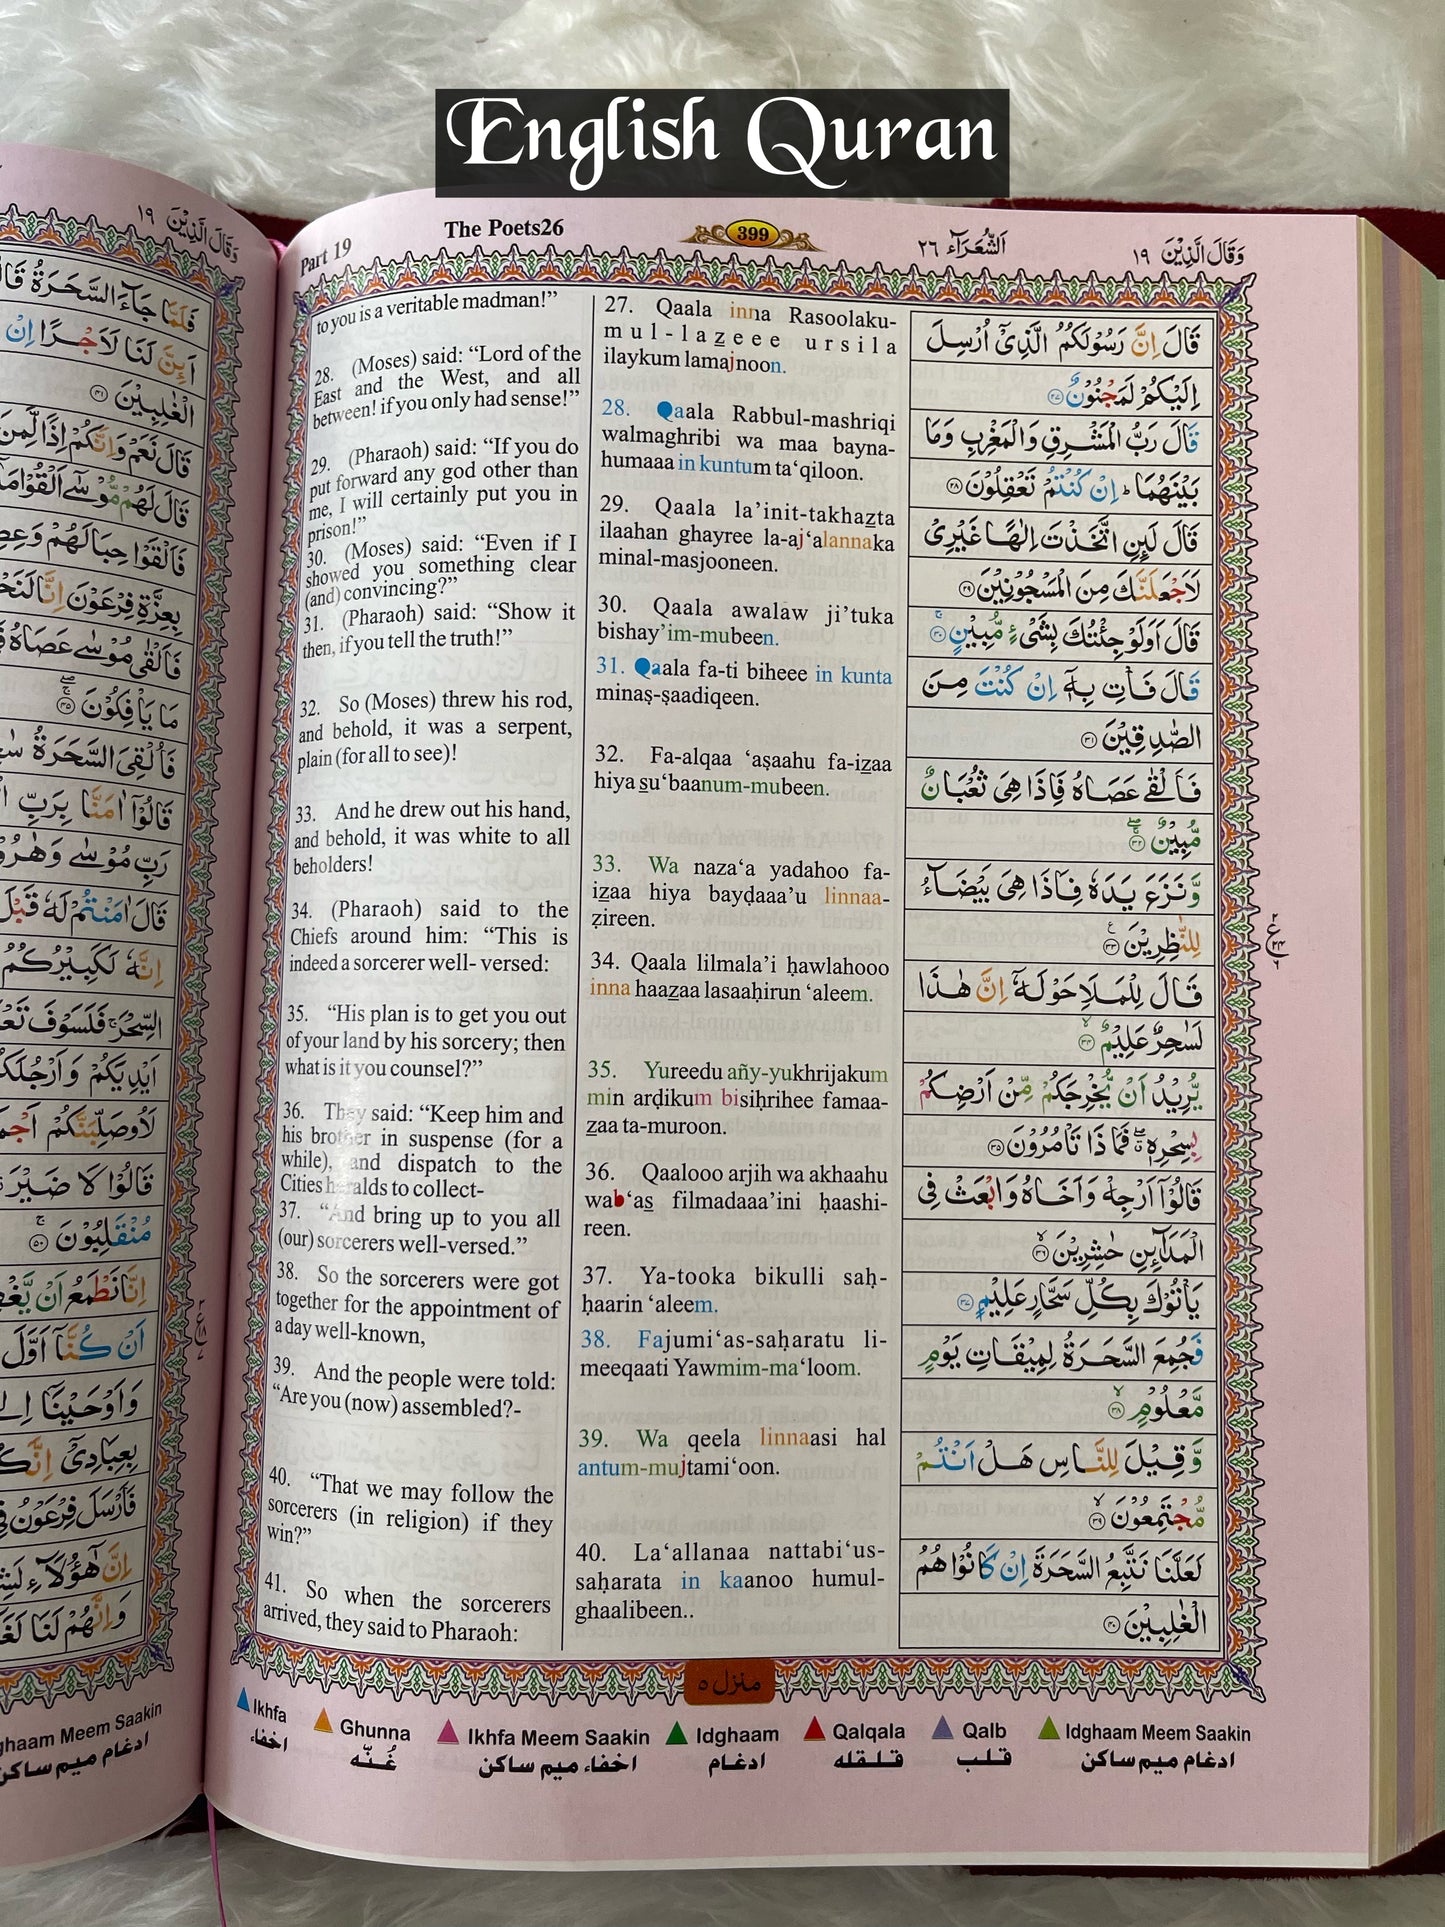 English Quran
Part 19
The Poets26
399
اَلشُّعَرَآء ٢٦
وَقَالَ الَّذِيْنَ ١٩
to you is a veritable madman!”
28. (Moses) said: “Lord of the
East and the West, and all
between! if you only had sense!”
29. (Pharaoh) said: “If you do
put forward any god other than
me, I will certainly put you in
prison!”
30. (Moses) said: “Even if I
showed you something clear
(and) convincing?”
31. (Pharaoh) said: “Show it
then, if you tell the truth!”
32. So (Moses) threw his rod,
and behold, it was a serpent,
plain (for all to see)!
33. And he drew out his hand,
and behold, it was white to all
beholders!
34. (Pharaoh) said to the
Chiefs around him: “This is
indeed a sorcerer well- versed:
35. “His plan is to get you out
of your land by his sorcery; then
what is it you counsel?”
36. They said: “Keep him and
his brother in suspense (for a
while), and dispatch to the
Cities heralds to collect-
37. “And bring up to you all
(our) sorcerers well-versed.”
38. So the sorcerers were got
together for the appointment of
a day well-known,
39. And the people were told:
“Are you (now) assembled?-
40. “That we may follow the
sorcerers (in religion) if they
win?”
41. So when the sorcerers
arrived, they said to Pharaoh:
27. Qaala inna Rasoolaku-
mul-lazeee ursila
ilaykum lamajnoon.
28. Qaala Rabbul-mashriqi
walmaghribi wa maa bayna-
humaaa in kuntum ta‘qiloon.
29. Qaala la’init-takhazta
ilaahan ghayree la-aj‘alannaka
minal-masjooneen.
30. Qaala awalaw ji’tuka
bishay’im-mubeen.
31. Qaala fa-ti biheee in kunta
minaṣ-ṣaadiqeen.
32. Fa-alqaa ‘aṣaahu fa-izaa
hiya su‘baanum-mubeen.
33. Wa naza‘a yadahoo fa-
izaa hiya bayḍaaa’u linnaa-
ẓireen.
34. Qaala lilmala’i ḥawlahooo
inna haazaa lasaaḥirun ‘aleem.
35. Yureedu añy-yukhrijakum
min arḍikum bisiḥrihee famaa-
zaa ta-muroon.
36. Qaalooo arjih wa akhaahu
wab‘as filmadaaa’ini ḥaashi-
reen.
37. Ya-tooka bikulli saḥ-
ḥaarin ‘aleem.
38. Fajumi‘as-saḥaratu li-
meeqaati Yawmim-ma‘loom.
39. Wa qeela linnaasi hal
antum-mujtami‘oon.
40. La‘allanaa nattabi‘us-
saḥarata in kaanoo humul-
ghaalibeen..
قَالَ اِنَّ رَسُوْلَكُمُ الَّذِيْٓ اُرْسِلَ
اِلَيْكُمْ لَمَجْنُوْنٌ ٢٧
قَالَ رَبُّ الْمَشْرِقِ وَالْمَغْرِبِ وَمَا
بَيْنَهُمَا ؕ اِنْ كُنْتُمْ تَعْقِلُوْنَ ٢٨
قَالَ لَىِٕنِ اتَّخَذْتَ اِلٰهًا غَيْرِيْ
لَاَجْعَلَنَّكَ مِنَ الْمَسْجُوْنِيْنَ ٢٩
قَالَ اَوَلَوْ جِئْتُكَ بِشَيْءٍ مُّبِيْنٍ ٣٠
قَالَ فَاْتِ بِهٖٓ اِنْ كُنْتَ مِنَ
الصّٰدِقِيْنَ ٣١
فَاَلْقٰى عَصَاهُ فَاِذَا هِيَ ثُعْبَانٌ
مُّبِيْنٌ ٣٢
وَّنَزَعَ يَدَهٗ فَاِذَا هِيَ بَيْضَآءُ
لِلنّٰظِرِيْنَ ٣٣
قَالَ لِلْمَلَاِ حَوْلَهٗٓ اِنَّ هٰذَا
لَسٰحِرٌ عَلِيْمٌ ٣٤
يُّرِيْدُ اَنْ يُّخْرِجَكُمْ مِّنْ اَرْضِكُمْ
بِسِحْرِهٖ فَمَا ذَا تَاْمُرُوْنَ ٣٥
قَالُوْٓا اَرْجِهْ وَاَخَاهُ وَابْعَثْ فِي
الْمَدَآىِٕنِ حٰشِرِيْنَ ٣٦
يَاْتُوْكَ بِكُلِّ سَحَّارٍ عَلِيْمٍ ٣٧
فَجُمِعَ السَّحَرَةُ لِمِيْقَاتِ يَوْمٍ
مَّعْلُوْمٍ ٣٨
وَّقِيْلَ لِلنَّاسِ هَلْ اَنْتُمْ
مُّجْتَمِعُوْنَ ٣٩
لَعَلَّنَا نَتَّبِعُ السَّحَرَةَ اِنْ كَانُوْا هُمُ
الْغٰلِبِيْنَ ٤٠
منزل ٥
Ikhfa
Ghunna
Ikhfa Meem Saakin
Idghaam
Qalqala
Qalb
Idghaam Meem Saakin
اخفاء
غُنّه
اخفاء ميم ساكن
ادغام
قلقله
قلب
ادغام ميم ساكن
وَقَالَ الَّذِيْنَ ١٩
فَلَمَّا جَآءَ السَّحَرَةُ
اَىِٕنَّ لَنَا لَاَجْرًا اِنْ
الْغٰلِبِيْنَ ٤١
قَالَ نَعَمْ وَاِنَّكُمْ اِذًا لَّمِنَ
قَالَ لَهُمْ مُّوْسٰٓى اَلْقُوْا
فَاَلْقَوْا حِبَالَهُمْ
بِعِزَّةِ فِرْعَوْنَ اِنَّا
فَاَلْقٰى مُوْسٰى عَصَاهُ
مَا يَاْفِكُوْنَ ٤٥
فَاُلْقِيَ السَّحَرَةُ
قَالُوْٓا اٰمَنَّا بِرَبِّ
رَبِّ مُوْسٰى وَهٰرُوْ
قَالَ اٰمَنْتُمْ لَهٗ قَبْلَ
اِنَّهٗ لَكَبِيْرُكُمُ
السِّحْرَ فَلَسَوْفَ
اَيْدِيَكُمْ وَاَرْجُلَكُمْ
لَاُوصَلِّبَنَّكُمْ
قَالُوْا لَا ضَيْرَ
مُنْقَلِبُوْنَ ٥٠
اِنَّا نَطْمَعُ اَنْ
اَنْ كُنَّآ اَوَّلَ
وَاَوْحَيْنَآ
بِعِبَادِيْٓ
فَاَرْسَلَ فِرْعَوْنُ
اِنَّ هٰٓؤُلَآءِ
وَاِنَّهُمْ لَنَا
ghaam Meem Saakin
ادغام ميم ساكن